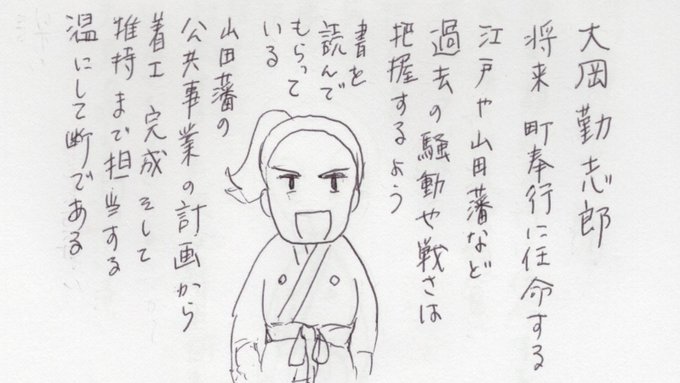 大岡勤志郎
将来 町奉行に任命する
江戸や山田藩など
過去の騒動や戦さは
把握するよう
書を
読んで
もらって
いる
山田藩の
公共事業の計画から
着工 完成 そして
維持まで担当する
温にして断である